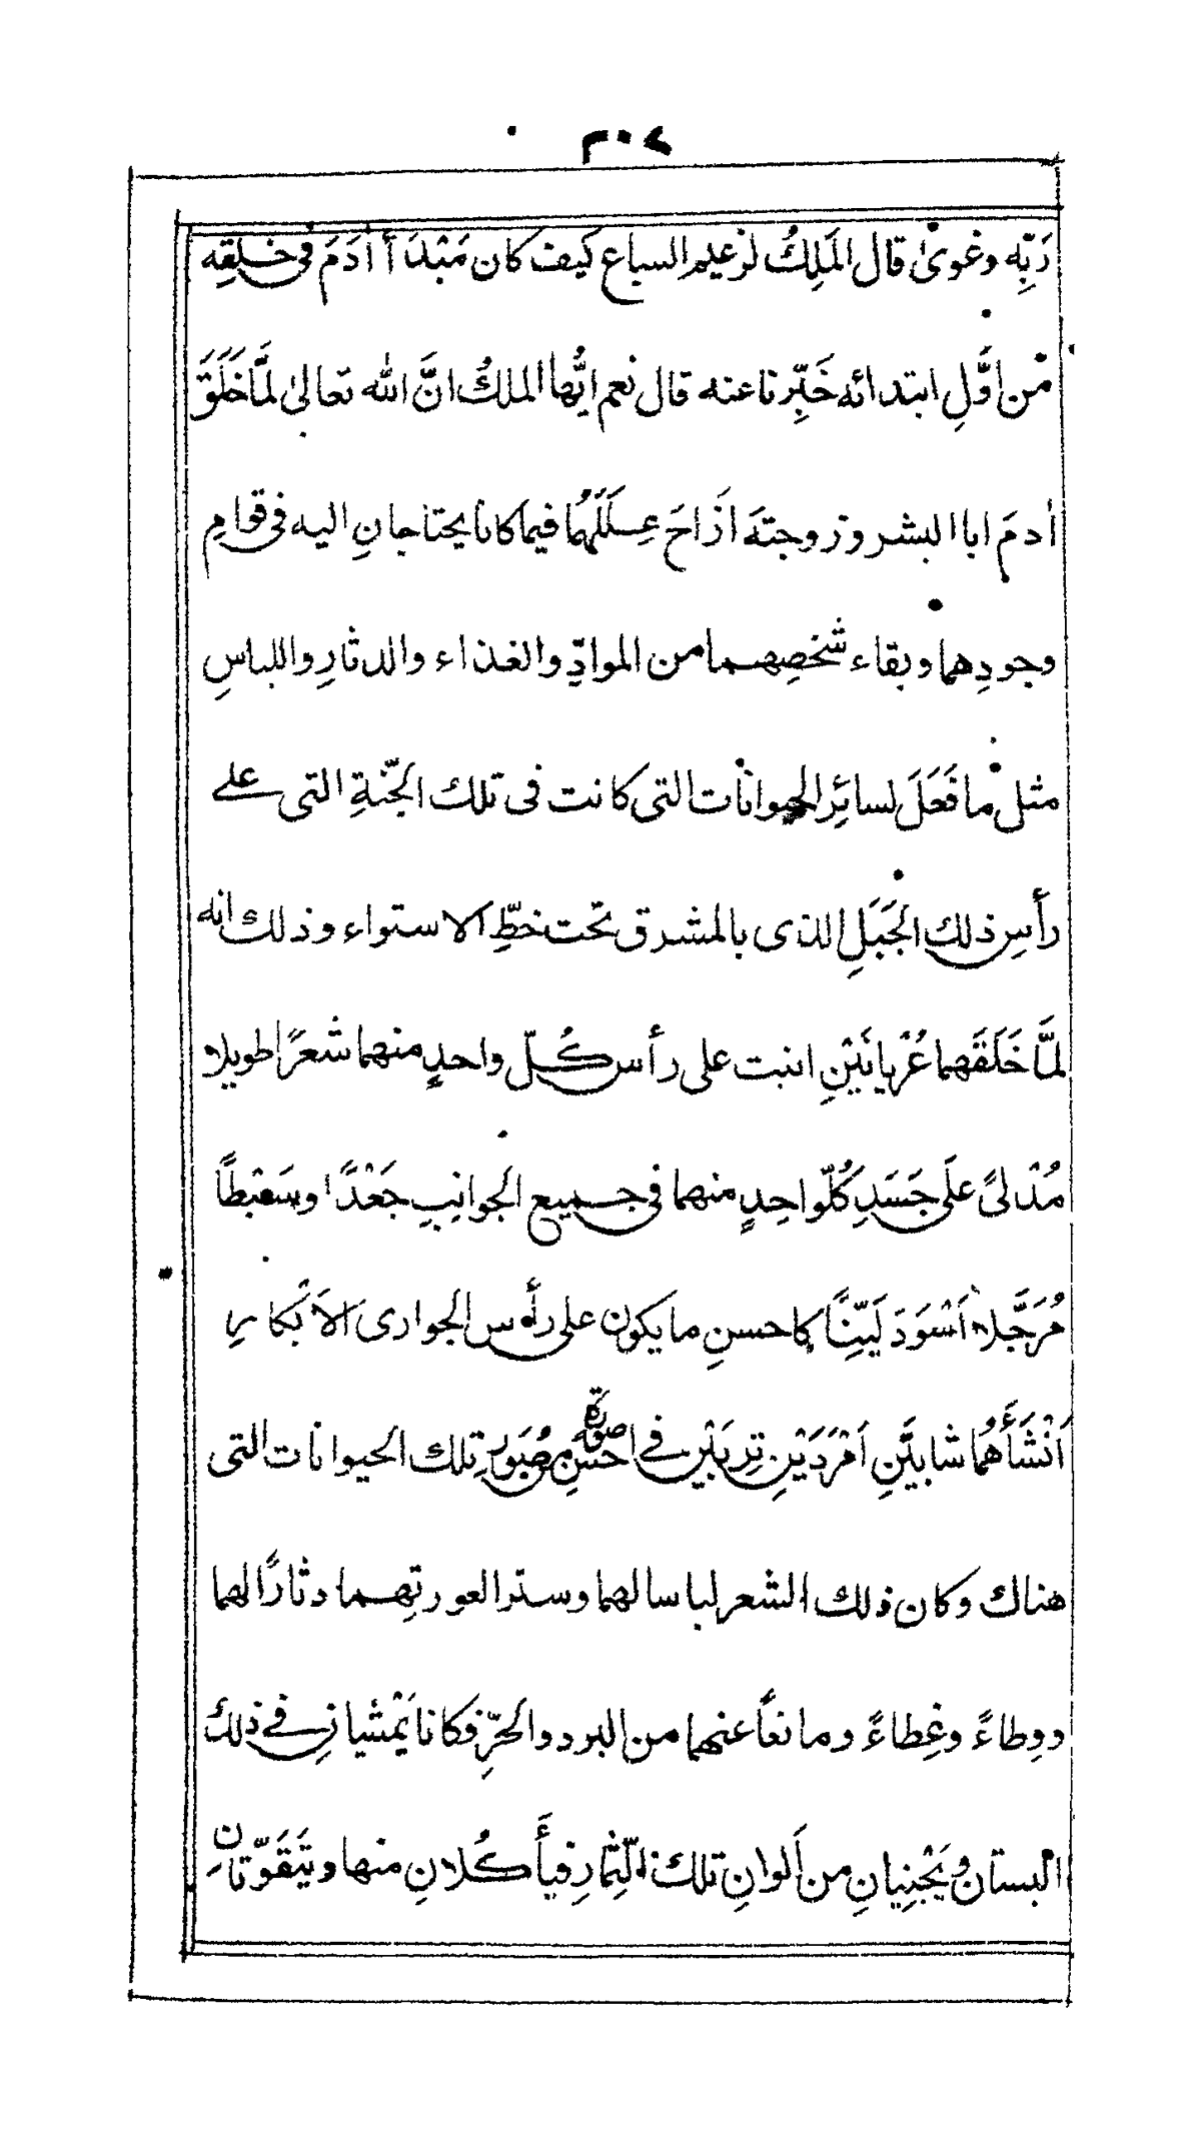 ٢٠٧
رَبِّه وغوىٰ قال المَلِكُ لزعيم السباع كيف كان مَبْدَأ أٰدَمَ فى خلقِه
من اوَّلِ ابتدائه خَبِّرنا عنه قال نعم ايُّها الملكُ انَّ الله تعالىٰ لمَّا خَلَقَ
اٰدمَ ابا البشر وزوجتَه اَزَاحَ عِلَلَهُما فيما كانا يحتاجانِ اليه فى قوامِ
وجودِهما وبقاء شخصِهما من الموادِّ والغذاء والدثارِ واللباسِ
مثل ما فَعَلَ لسائِرِ الحيوانات التى كانت فى تلك الجنَّةِ التى على
رأسِ ذلك الجَبَلِ الذى بالمشرق تحت خطِّ الاستواء وذلك انه
لمَّا خَلَقَهما عُرْيانَيْنِ انبت على رأس كُلّ واحدٍ منهما شعرًا طويلا
مُدْلىً علَى جَسَدِ كُلّ واحِدٍ منهما فى جميع الجوانِبِ جَعْدًا وسَبْطًا
مُرَجَّلا اَسْوَدَ لَيِّنًا كاحسنِ ما يكون على رأس الجوارى الاَبْكارِ
اَنْشَأَهُما شابَّيْنِ اَمْرَدَيْنِ تِرْبَيْنِ فے احسنِ صورة مِن صُوَرِ تلك الحيوانات التى
هناك وكان ذلك الشعر لباسا لهما وسترا لعورتِهما دثارًا لهما
ووِطاءً وغِطاءً ومانعاً عنهما من البرد والحرِّ فكانا يَمْشيانِ فے ذلك
البستان ويَجْنِيانِ من اَلوانِ تلك الثِّمارِ فيأَكُلانِ منها ويَتَقَوَّتانِ